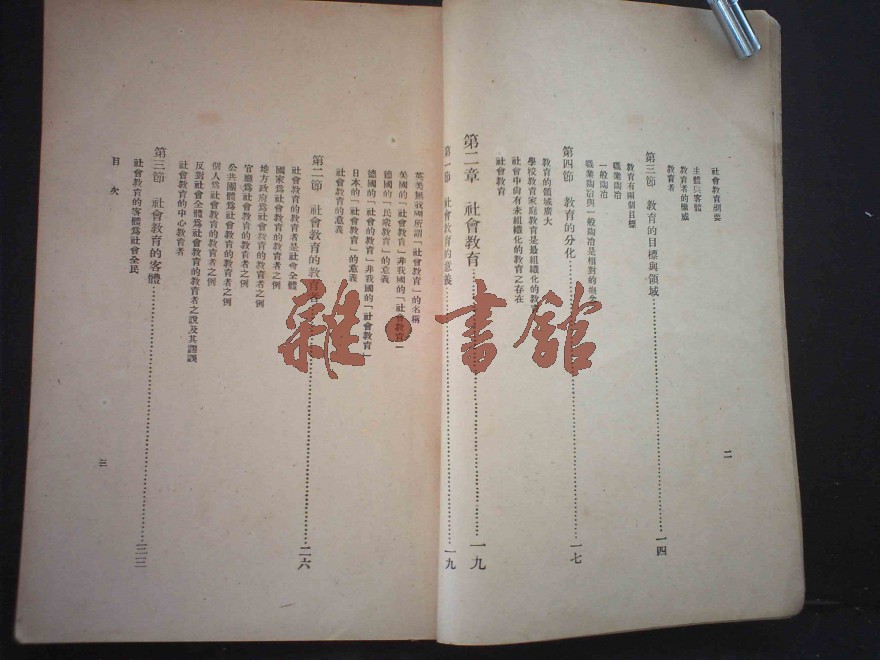 社會教育綱要
主體與客體
教育者的權威
教育者
第三節 教育的目標與領域 一四
教育有兩個目標
職業陶冶
一般陶冶
職業陶冶與一般陶冶是相對的
第四節 教育的分化 一七
教育的領域廣大
學校教育家庭教育是最組織化的教育
社會中尚有未組織化的教育之存在
社會教育
第二章 社會教育 一九
第一節 社會教育的意義 一九
英美無我國所謂「社會教育」的名稱
美國的「社會教育」非我國的「社會教育」
德國的「民衆教育」的意義
德國的「社會的教育」非我國的「社會教育」
日本的「社會教育」的意義
社會教育的意義
第二節 社會教育的教育者 二六
社會教育的教育者是社會全體
國家爲社會教育的教育者之例
地方政府爲社會教育的教育者之例
官廳爲社會教育的教育者之例
公共團體爲社會教育的教育者之例
個人爲社會教育的教育者之例
反對社會全體爲社會教育的教育者之說及其謬誤
社會教育的中心教育者
第三節 社會教育的客體 三三
社會教育的客體爲社會全民
目次
二
三
雜·書館